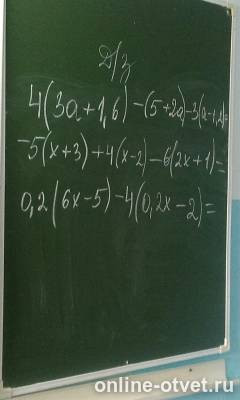 Д/з
4(3a+1,6)-(5+2a)-3(a-1,2)=
-5(x+3)+4(x-2)-6(2x+1)=
0,2(6x-5)-4(0,2x-2)=
online-otvet.ru